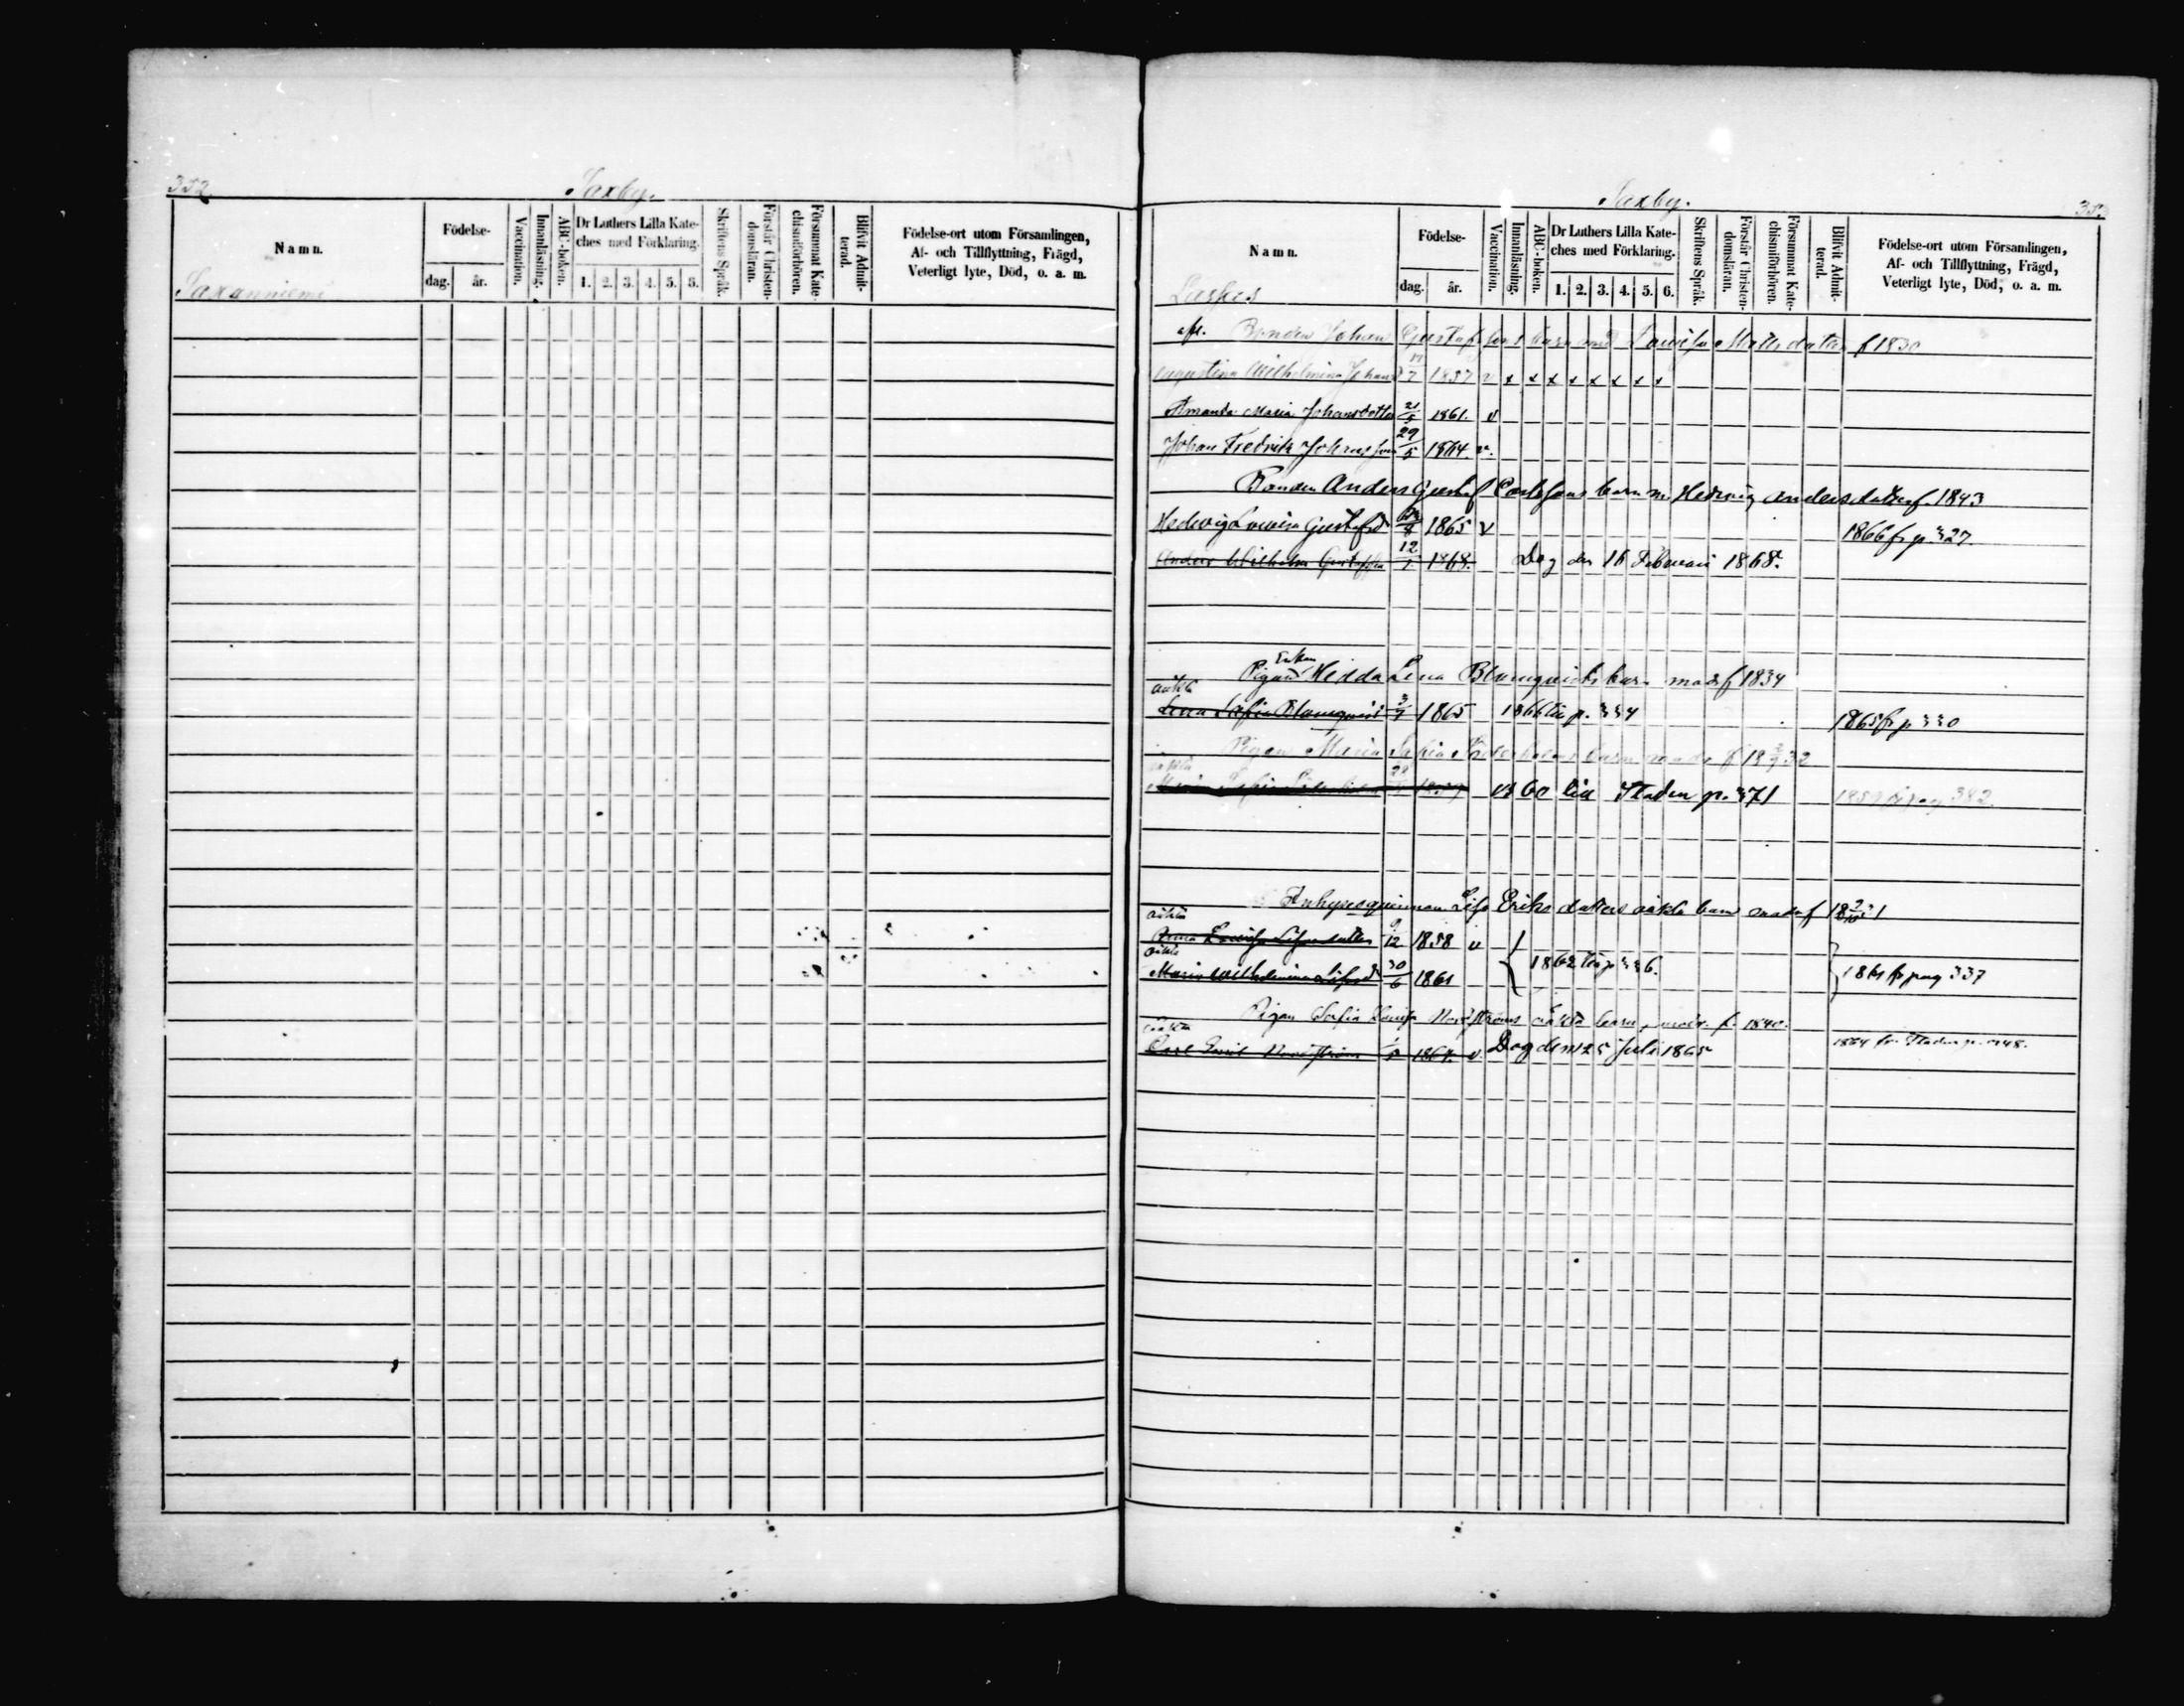 352
Saxby.
Namn.
Födelse-
dag. år.
Vaccination.
Innanläsning.
ABC-boken.
Dr Luthers Lilla Kate-
ches med Förklaring.
1. 2. 3. 4. 5. 6.
Skriftens Språk.
Förstår Christen-
domsläran.
Försummat Kate-
chismiförhören.
Blifvit Admit-
terad.
Födelse-ort utom Församlingen,
Af- och Tillflyttning, Frägd,
Veterligt lyte, Död, o. a. m.
Saxanniemi
Saxby.
353
Namn.
Födelse-
dag. år.
Vaccination.
Innanläsning.
ABC-boken.
Dr Luthers Lilla Kate-
ches med Förklaring.
1. 2. 3. 4. 5. 6.
Skriftens Språk.
Förstår Christen-
domsläran.
Försummat Kate-
chismiförhören.
Blifvit Admit-
terad.
Födelse-ort utom Församlingen,
Af- och Tillflyttning, Frägd,
Veterligt lyte, Död, o. a. m.
Bonden Johan Gustafssons barn med Lovisa Mattsdotter f 1830
Augustina Wilhelmina Johansd 1857 v x x x x x x x x
Amanda Maria Johansdotter 21/5 1861. v
Johan Fredrik Johansson 29/5 1864. v.
Bonden Anders Gustaf Carlssons barn m. Hedvig Andersdotter f. 1843
Hedvig Lovisa Gustafsd 1865 v 1866 fr p. 327
Anders Wilhelm Gustafsson 12/1 1868. Dog den 16 Februari 1868.
Enkan
Pigan Hedda Lena Blomqvists barn modr f 1834
oäkta
Lena Sofia Blomqvist 3/7 1865 1866 till p. 334 1865 fr p 330
Pigan Maria Sofia barn modr f 18 3/9 32
oäkta
Maria Sofia 1860 till Staden p. 371 1859 fr pag 382.
Inhysesqvinnan Lisa Eriksdotters oäkta barn modr f 18 31
oäkta
Lovisa Lisasdotter 9/12 1858 v
oäkta
Maria Wilhelmina Lisasd 30/6 1861 1862 till p 336. 1861 fr pag 337
Pigan Sofia Lovisa Nordströms oäkta barn, modr. f. 1840.
oäkta
Carl Emil Nordström 1/5 1864. v Dog den 25 Juli 1865 1864 fr. Staden p. 48.